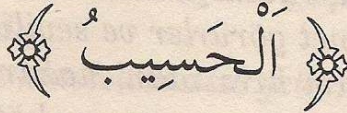 اَلْحَسِيبُ